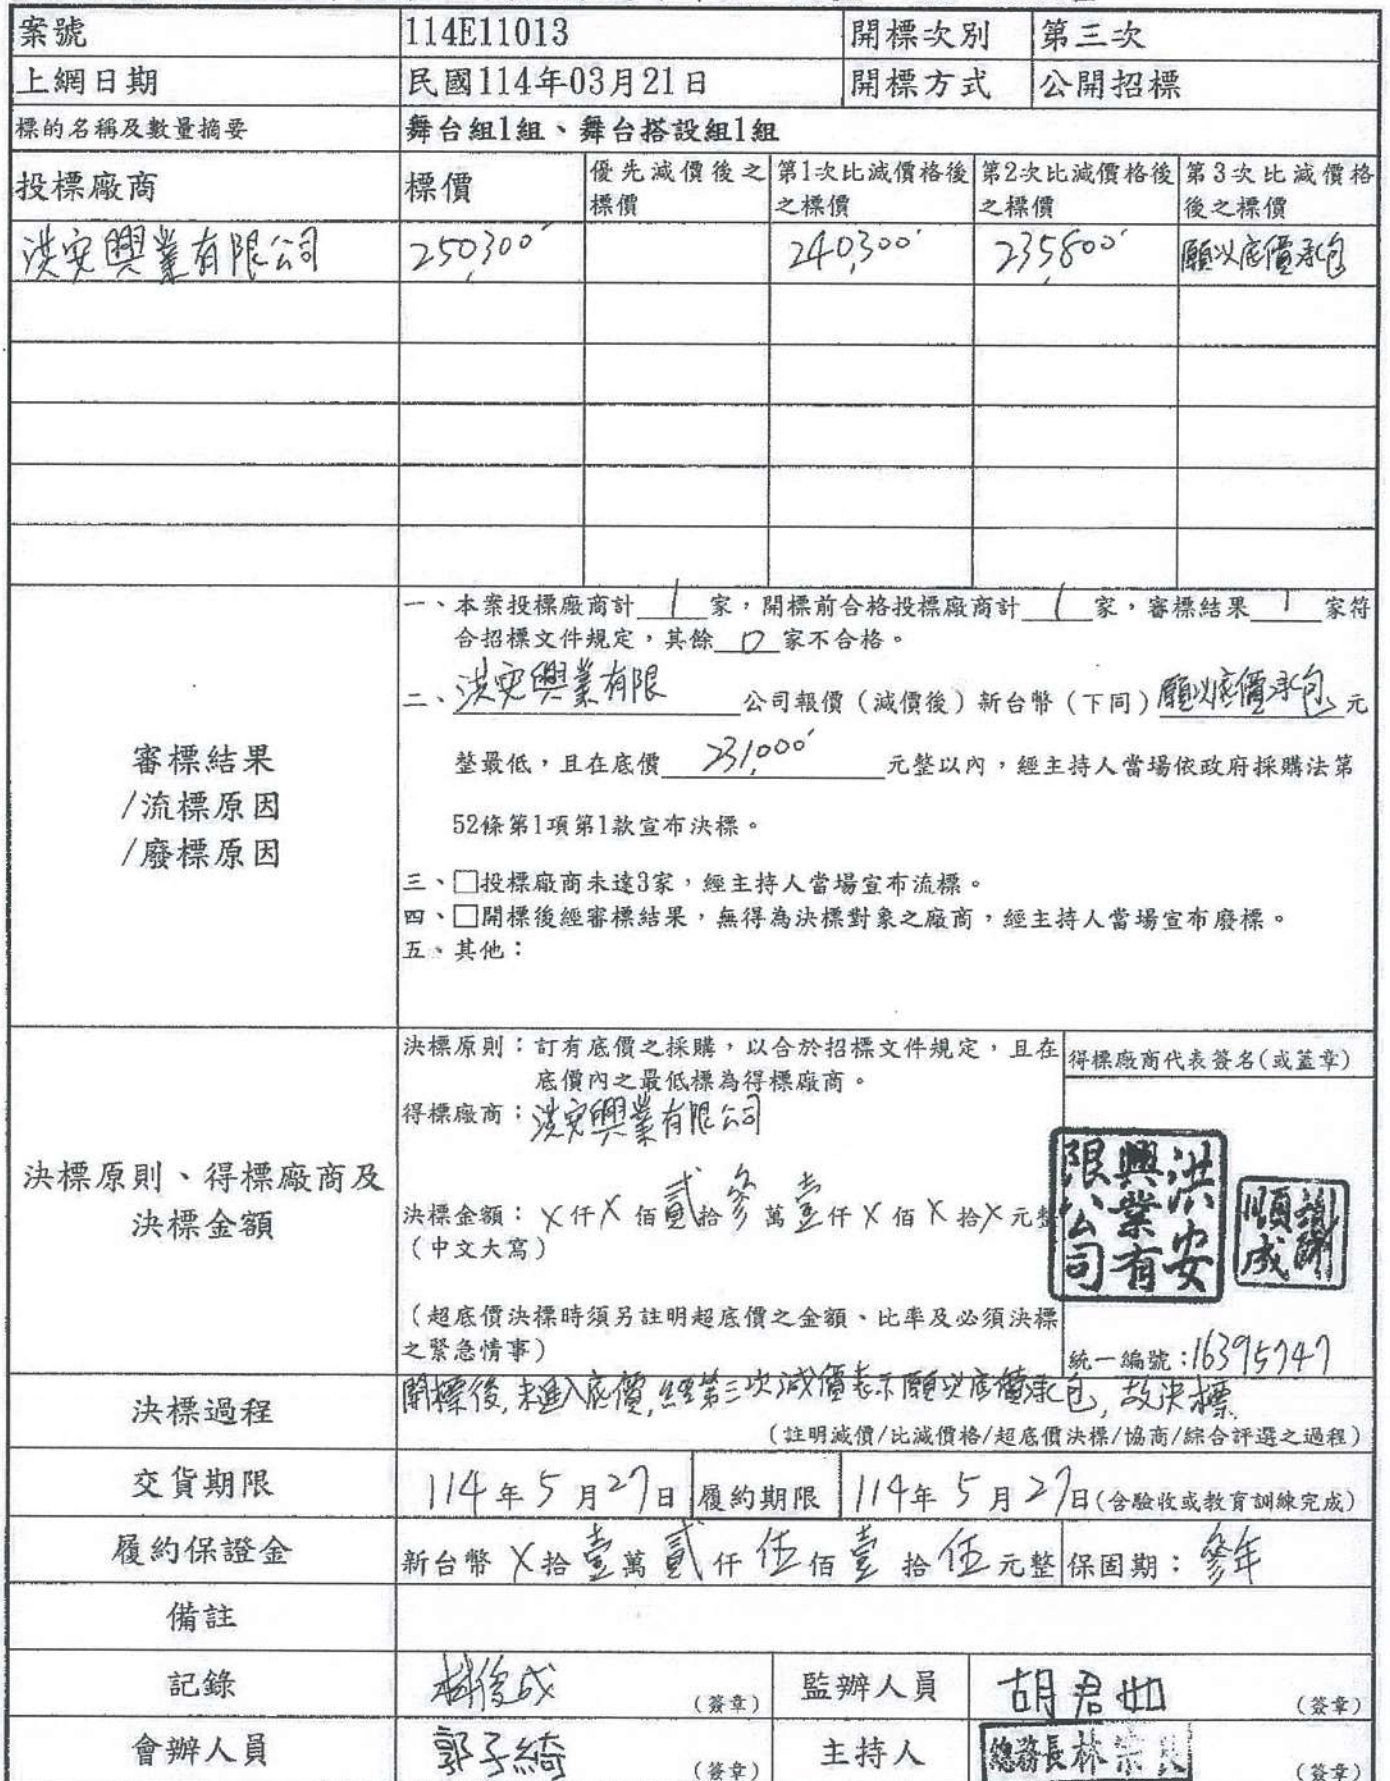 案號 114E11013 開標次別 第三次
上網日期 民國114年03月21日 開標方式 公開招標
標的名稱及數量摘要 舞台組1組、舞台搭設組1組
投標廠商 標價 優先減價後之標價 第1次比減價格後之標價 第2次比減價格後之標價 第3次比減價格後之標價
洪安興業有限公司 250,300 240,300 235,800 願以底價承包
審標結果
/流標原因
/廢標原因
一、本案投標廠商計 1 家,開標前合格投標廠商計 1 家,審標結果 1 家符
合招標文件規定,其餘 0 家不合格。
二、洪安興業有限 公司報價(減價後)新台幣(下同)願以底價承包 元
整最低,且在底價 231,000 元整以內,經主持人當場依政府採購法第
52條第1項第1款宣布決標。
三、□投標廠商未達3家,經主持人當場宣布流標。
四、□開標後經審標結果,無得為決標對象之廠商,經主持人當場宣布廢標。
五、其他:
決標原則、得標廠商及
決標金額
決標原則:訂有底價之採購,以合於招標文件規定,且在
底價內之最低標為得標廠商。
得標廠商:洪安興業有限公司
決標金額:X仟X佰貳拾參萬壹仟X佰X拾X元整
(中文大寫)
(超底價決標時須另註明超底價之金額、比率及必須決標
之緊急情事)
得標廠商代表簽名(或蓋章)
洪安興業有限公司
謝順成
統一編號:16395747
決標過程 開標後,未進入底價,經第三次減價表示願以底價承包,故決標
(註明減價/比減價格/超底價決標/協商/綜合評選之過程)
交貨期限 114年5月27日 履約期限 114年5月27日(含驗收或教育訓練完成)
履約保證金 新台幣X拾壹萬貳仟伍佰壹拾伍元整 保固期:參年
備註
記錄 俊成 (簽章) 監辦人員 胡君如 (簽章)
會辦人員 郭子綺 (簽章) 主持人 總務長林宗 (簽章)